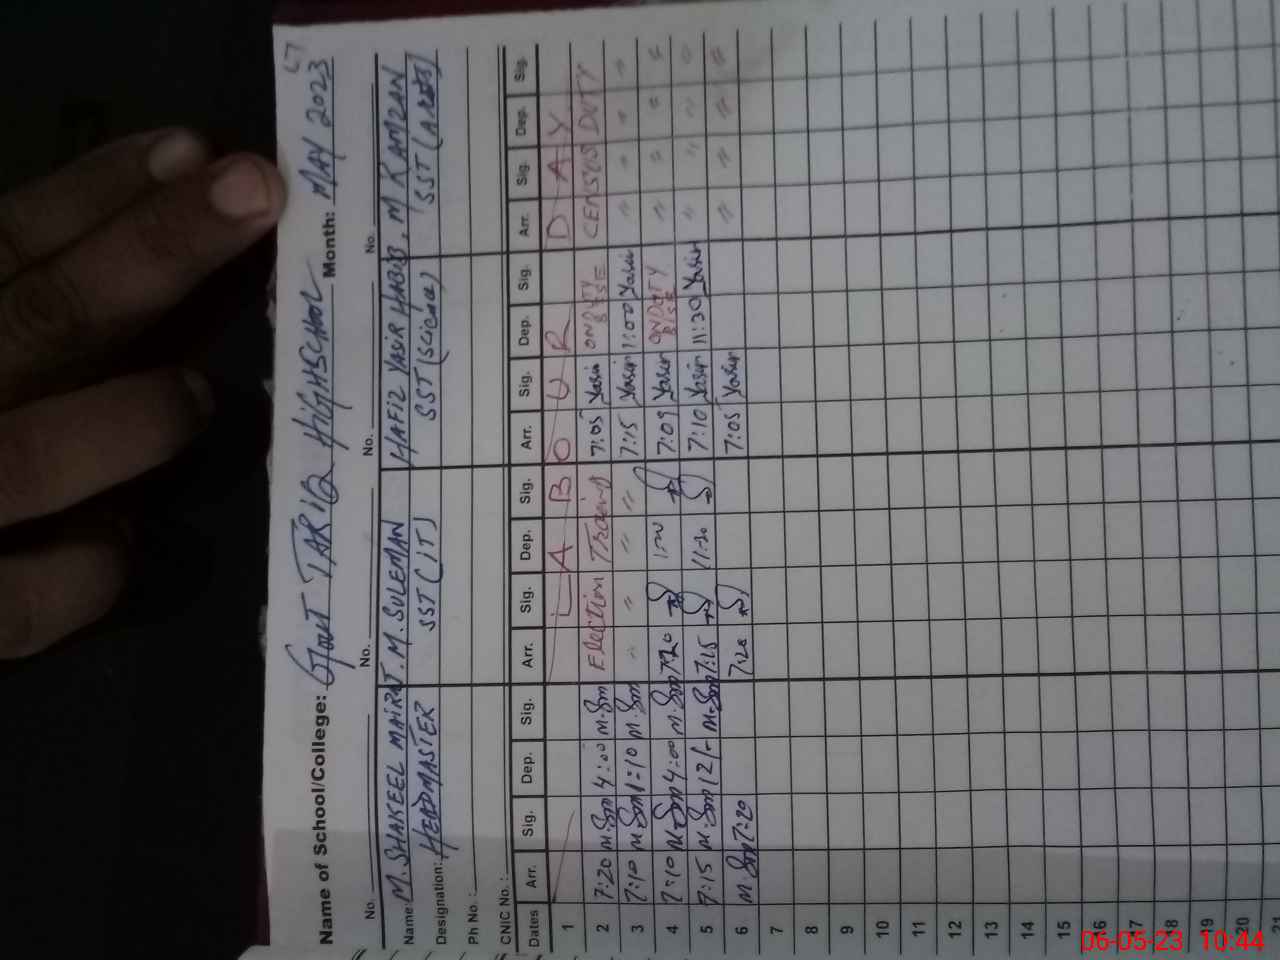 Name of School/College: Govt TARIQ HIGHSCHOOL Month: MAY 2023
No. No. No. No.
Name: M. SHAKEEL M. SULEMAN HAFIZ YASIR HABIB, M RAMZAN
Designation: HEADMASTER SST (IT) SST (Science) SST (ARTS)
Ph No. :
CNIC No. :
Dates Arr. Sig. Dep. Sig. Arr. Sig. Dep. Sig. Arr. Sig. Dep. Sig. Arr. Sig. Dep. Sig.
1 L A B O U R D A Y
2 7:20 4:00 Election 7:05 Yasir ON DUTY BISE CENSUS DUTY
3 7:10 1:10 " " " " 7:15 Yasir 1:00 Yasir " " " "
4 7:10 4:00 7:20 7:09 Yasir ON DUTY BISE " " " "
5 7:15 12/- 7:15 11:30 7:10 Yasir 11:30 Yasir " " " "
6 7:20 7:20 7:05 Yasir " " " "
7
8
9
10
11
12
13
14
15
16
17
18
19
20
21
06-05-23 10:44